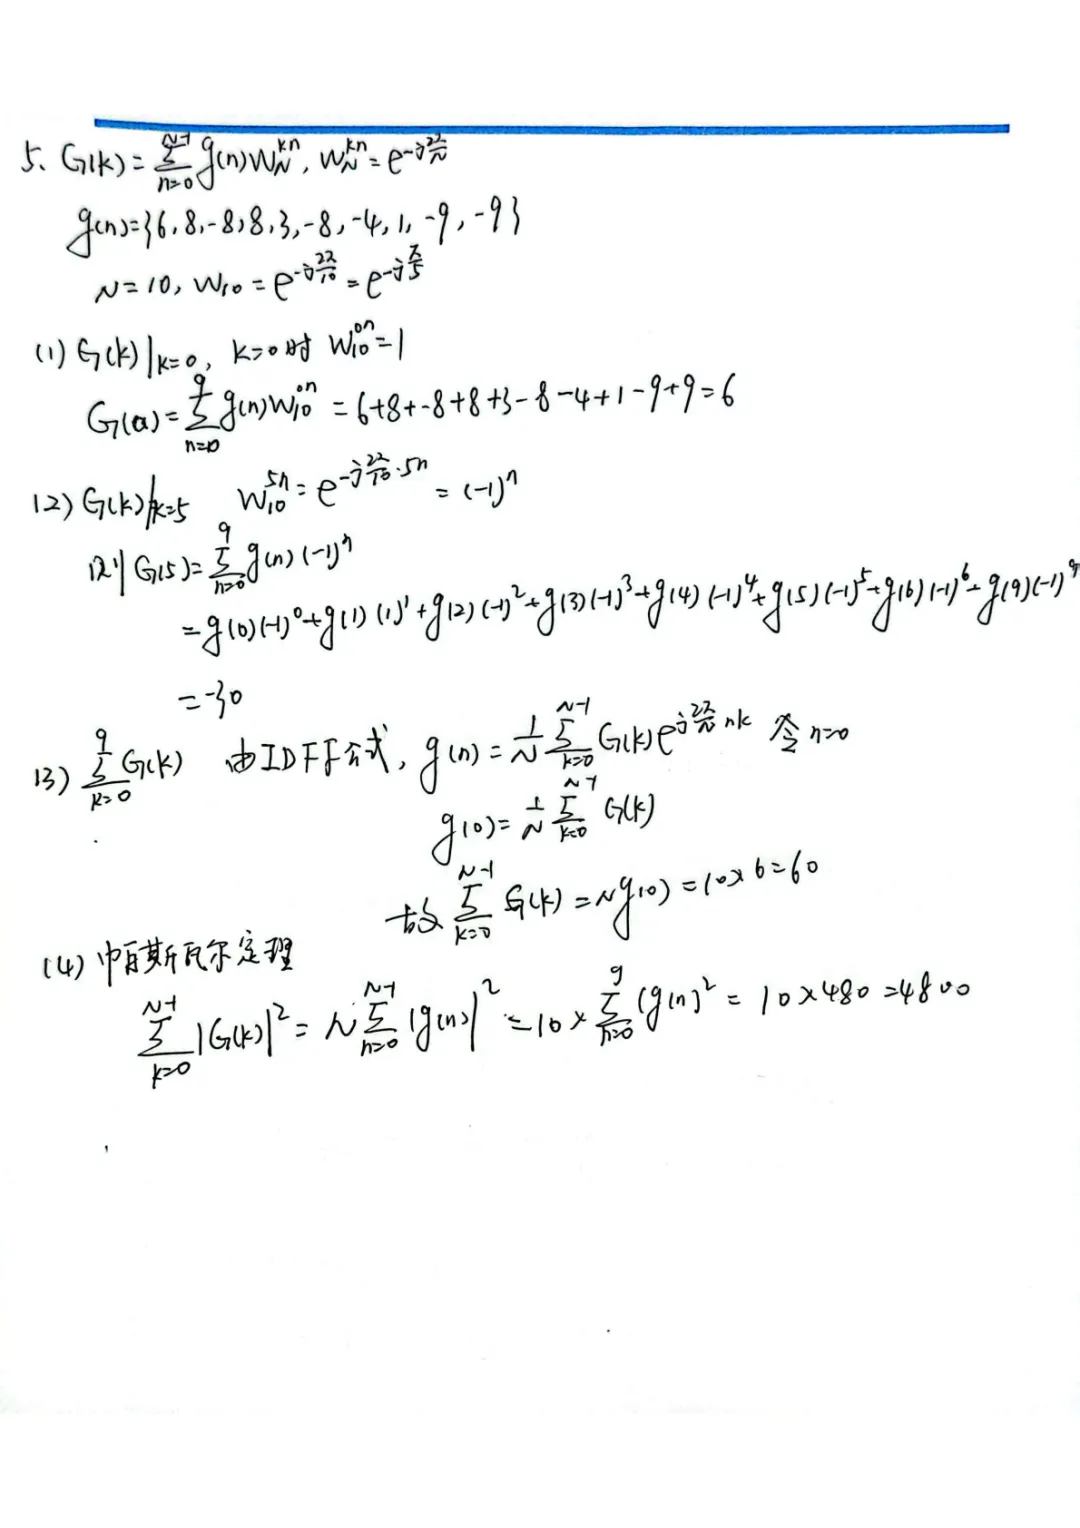 5、G(k)=∑_{n=0}^{N-1} g(n)W_N^{kn}, W_N^{kn}=e^{-j\frac{2π}{N}}
g(n)={6,8,-8,8,3,-8,-4,1,-9,-9}
N=10, W_{10}=e^{-j\frac{2π}{10}}=e^{-j\frac{π}{5}}
(1) G(k)|_{k=0}, k=0时 W_{10}^{0n}=1
G(0)=∑_{n=0}^{9} g(n)W_{10}^{0n}=6+8+-8+8+3-8-4+1-9+9=6
(2) G(k)|_{k=5} W_{10}^{5n}=e^{-j\frac{2π}{10}·5n}=(-1)^n
则 G(5)=∑_{n=0}^{9} g(n)(-1)^n
=g(0)(-1)^0+g(1)(1)^1+g(2)(-1)^2+g(3)(-1)^3+g(4)(-1)^4+g(5)(-1)^5+g(6)(-1)^6+g(9)(-1)^9
=-30
(3) ∑_{k=0}^{9} G(k) 由IDFF公式, g(n)=\frac{1}{N}∑_{k=0}^{N-1} G(k)e^{j\frac{2π}{N}nk} 令n=0
g(0)=\frac{1}{N}∑_{k=0}^{N-1} G(k)
故∑_{k=0}^{N-1} G(k)=Ng(0)=10×6=60
(4) 帕斯瓦尔定理
∑_{k=0}^{N-1}|G(k)|^2=N∑_{n=0}^{N-1}|g(n)|^2=10×∑_{n=0}^{9}(g(n)^2=10×480=4800